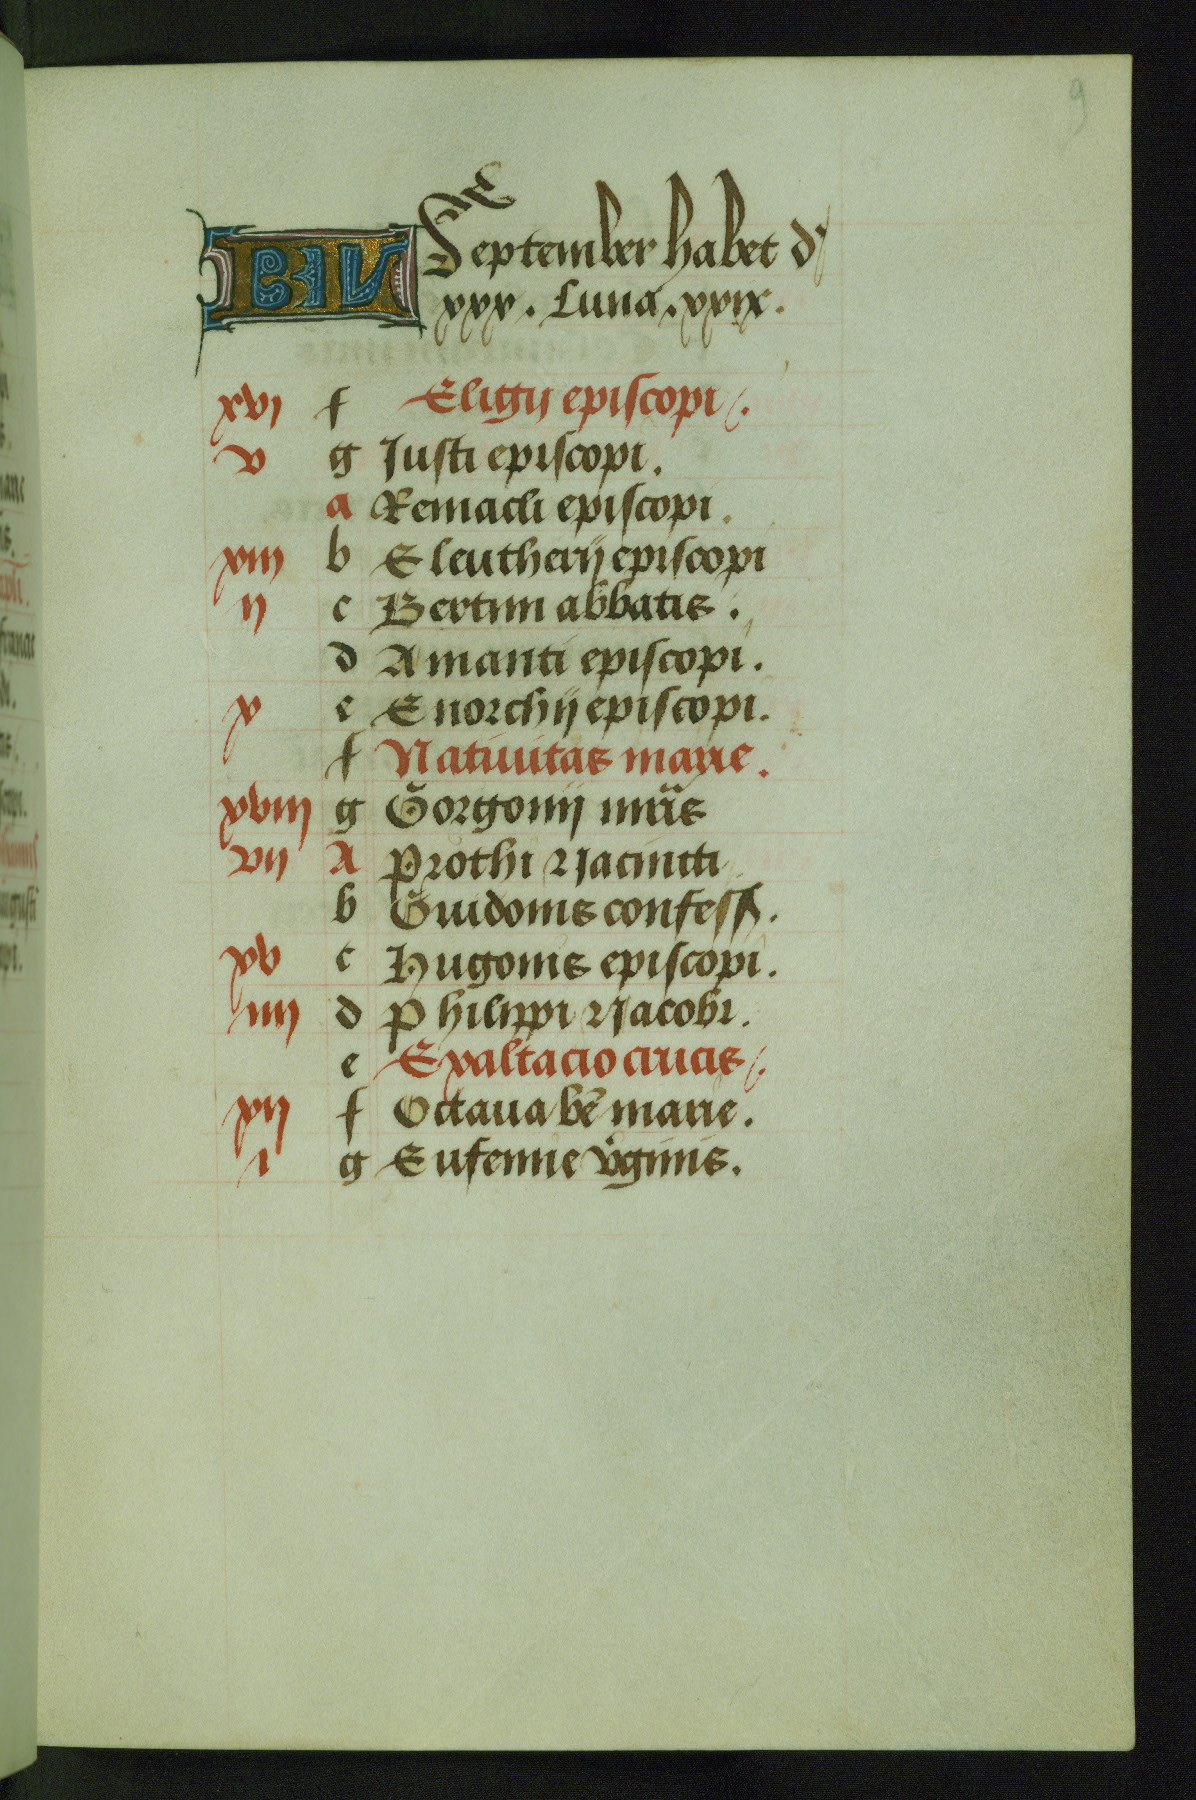 9
September habet d
xxx. Luna. xxix.
xvi f Eligij episcopi.
v g Justi episcopi.
a Remacli episcopi.
xiii b Eleutherij episcopi
ij c Bertini abbatis.
d Amanti episcopi.
x e Enorchij episcopi.
f Nativitas marie.
xviii g Gorgonij mris
vij A Prothi 2 Jacincti
b Guidonis confess.
xv c Hugonis episcopi.
iiii d Philippi 2 Jacobi.
e Exaltacio crucis.
xij f Octava be marie.
i g Eufemie vginis.